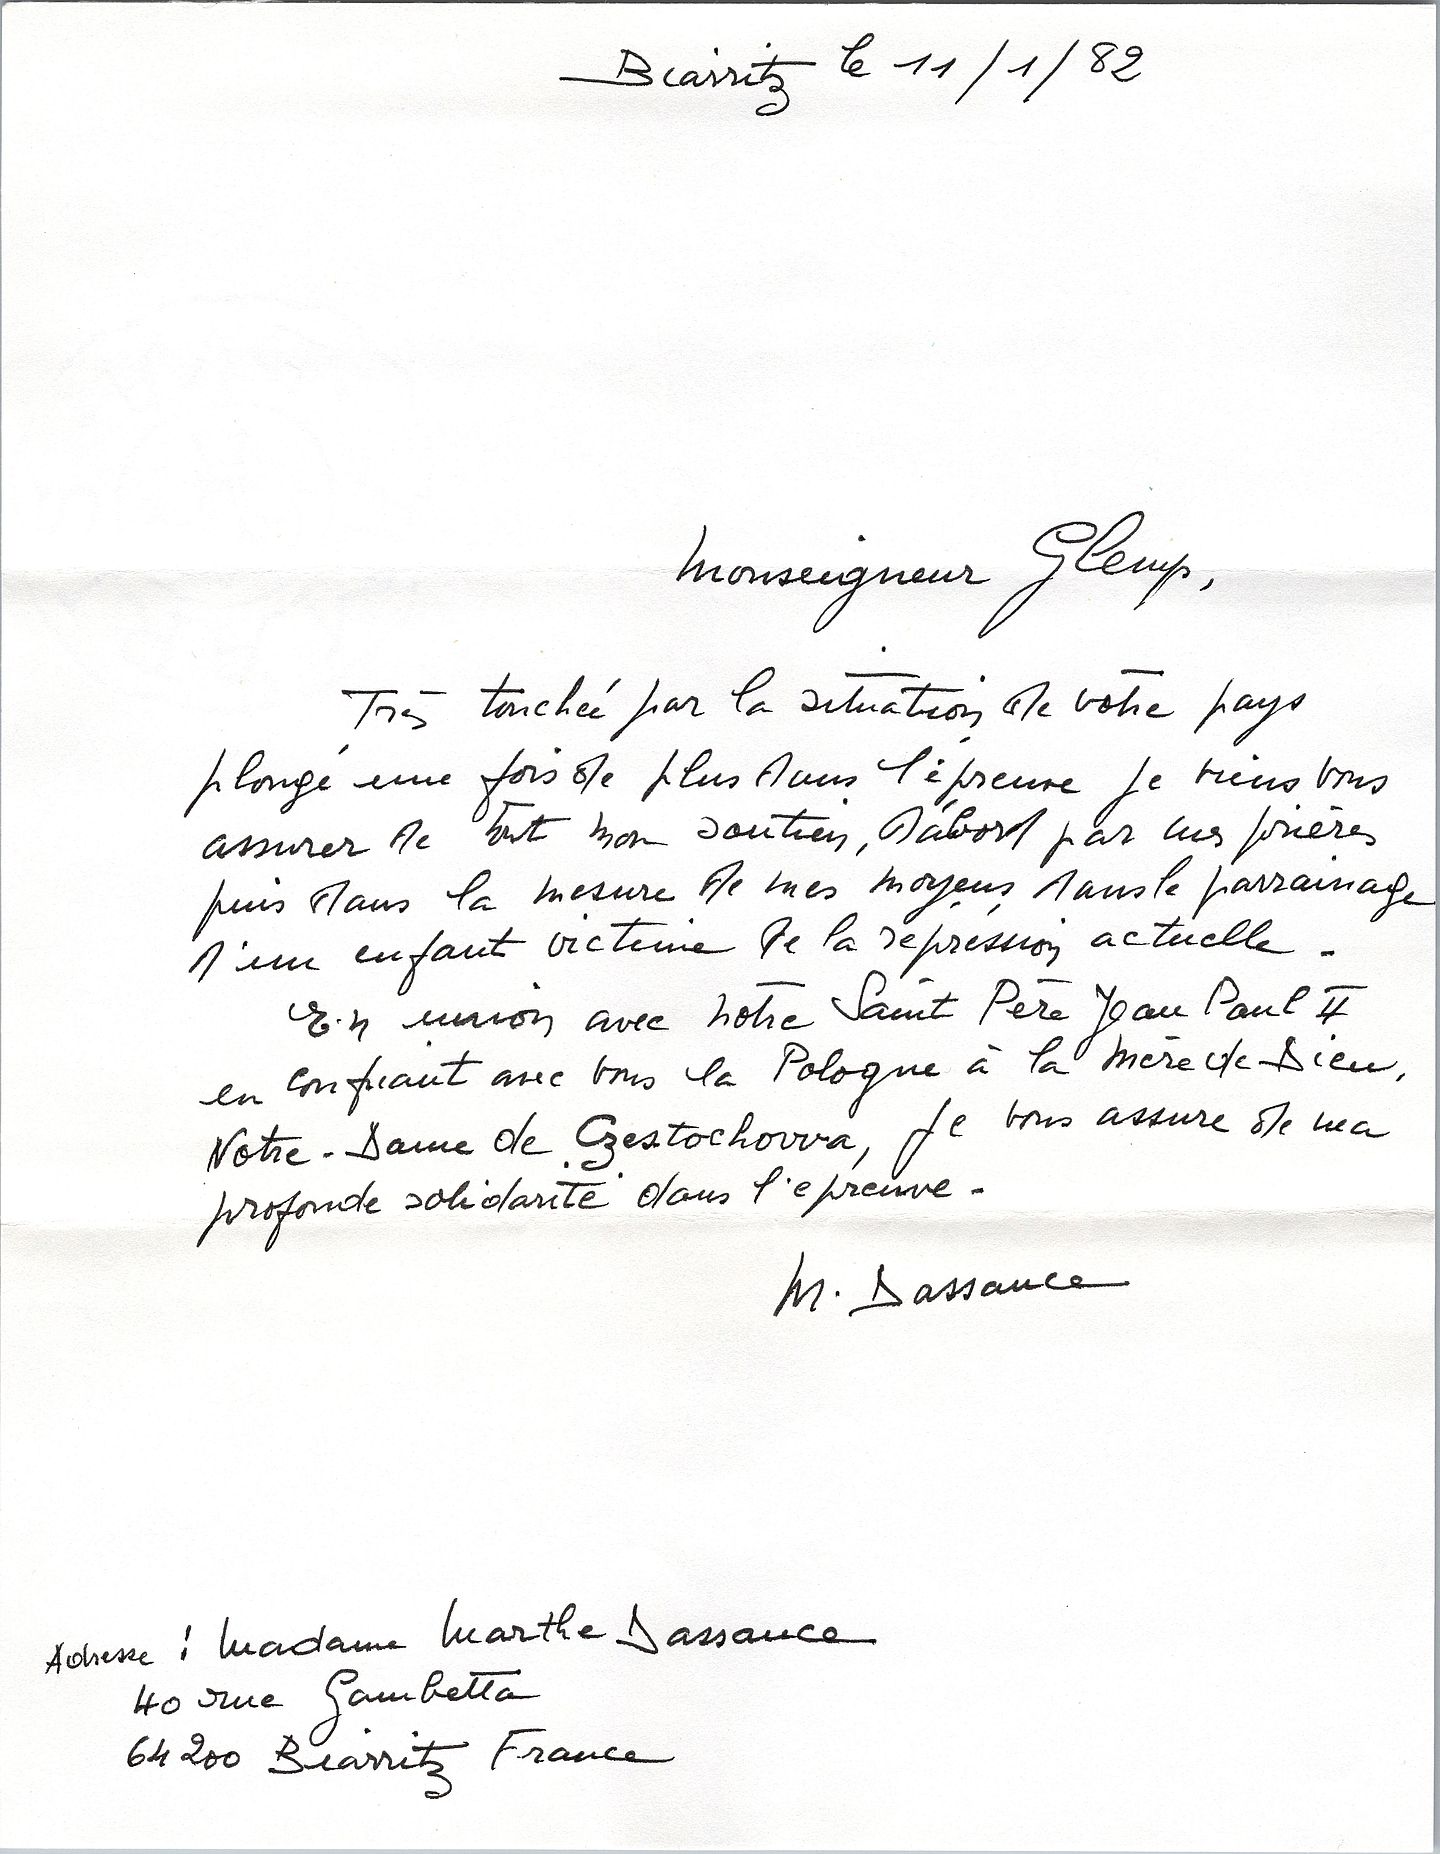 Biarritz le 11/1/82
Monseigneur Glemp,
Très touchée par la situation de votre pays
plongé une fois de plus dans l'épreuve je viens vous
assurer de tout mon soutien, d'abord par mes prières
puis dans la mesure de mes moyens dans le parrainage
d'un enfant victime de la répression actuelle.
En union avec notre Saint Père Jean Paul II
en confiant avec vous la Pologne à la Mère de Dieu,
Notre-Dame de Czestochovva, je vous assure de ma
profonde solidarité dans l'épreuve.
M. Dassance
Adresse : Madame Marthe Dassance
40 rue Gambetta
64200 Biarritz France